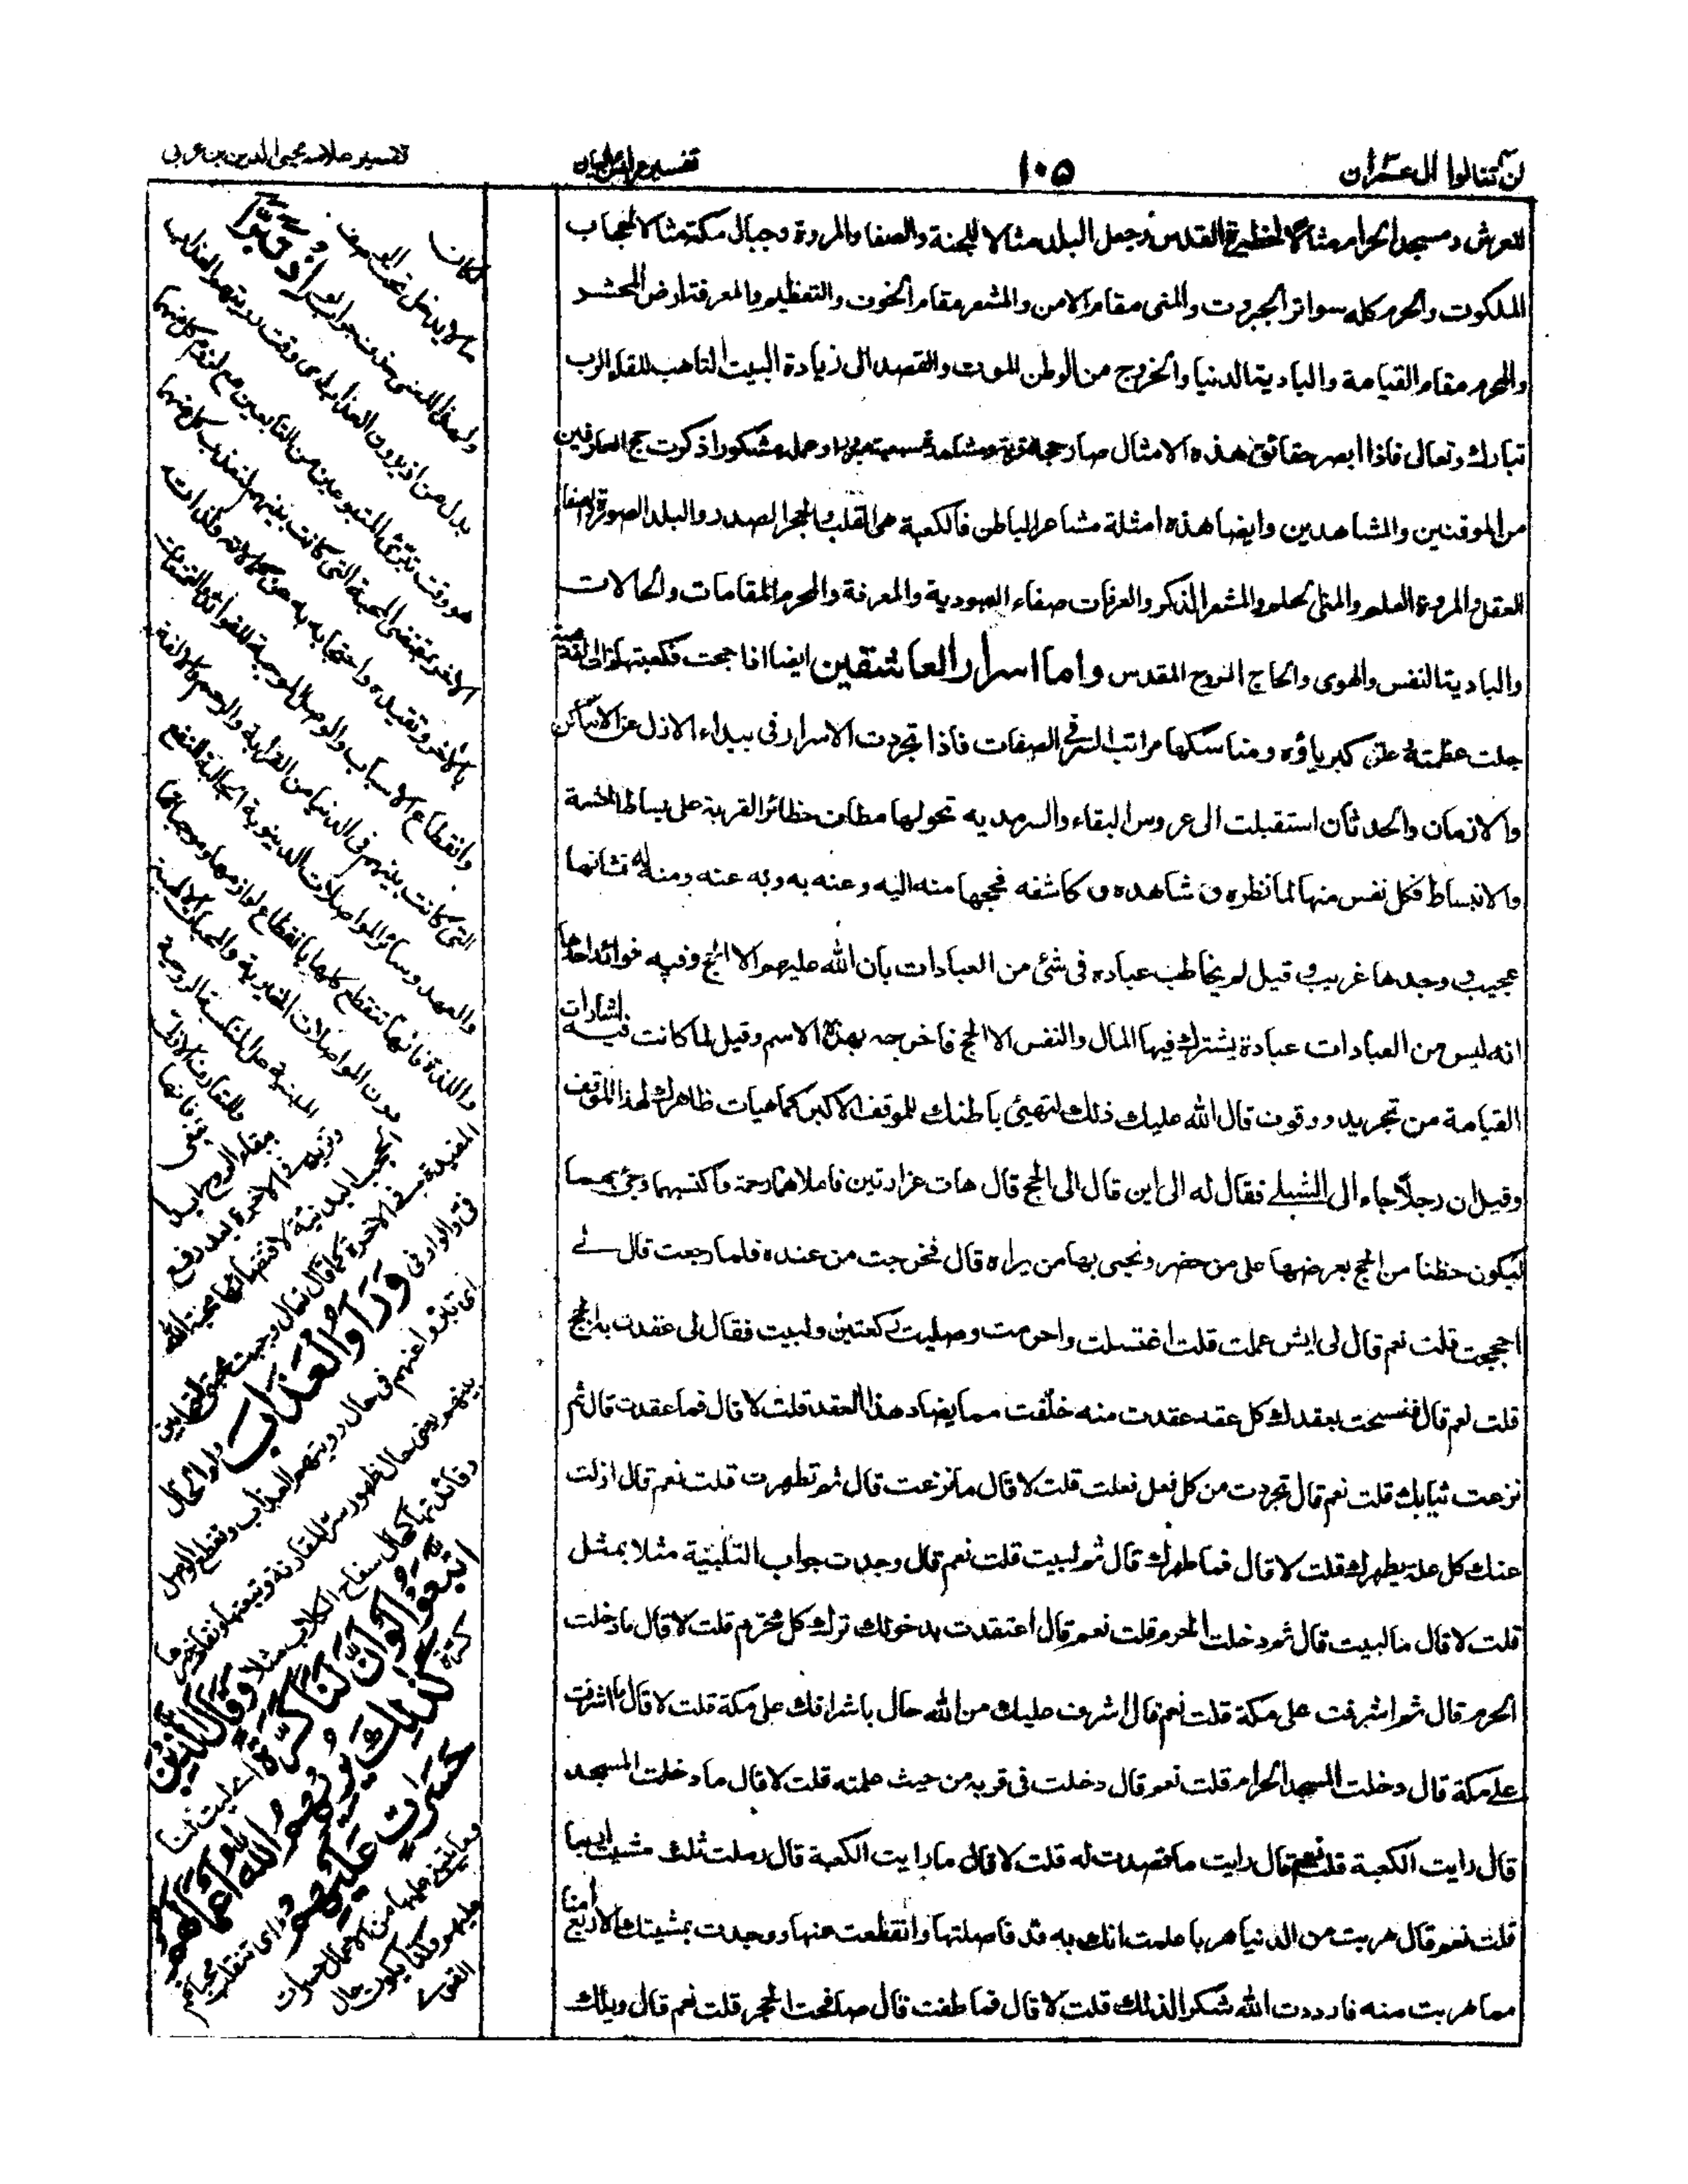 لن تنالوا ال عمران
١٠٥
تفسير عرائس البيان
تفسير علامه محيى الدين بن عربى
للعرش ومسجد الحرام مثالا لحظيرة القدس وجعل البلد مثالا للجنة والصفا والمروة وجبال مكة مثالا لحجاب
الملكوت والحرم كله سواتر الجبروت والمنى مقام الامن والمشعر مقام الخوف والتعظيم والمعرفة ارض المحشر
والمحرم مقام القيامة والبادية الدنيا والخروج من الوطن للموت والقصد الى زيادة البيت التاهب للقاء الرب
تبارك وتعالى فاذا ابصر حقائق هذه الامثال صار حجه وعمل مشكورا ذكرت حج العارفين
من الموقنين والمشاهدين وايضا هذه امثلة مشاعر الباطن فالكعبة هى القلب والحجر الصدر والبلد الصورة والصفا
العقل والمروة العلم والمنى الحلم والمشعر الذكر والعرفات صفاء العبودية والمعرفة والمحرم المقامات والحالات
والبادية النفس والهوى والحاج الروح المقدس واما اسرار العاشقين ايضا اذا حجت فكعبتها
جلت عظمته علىٰ كبرياؤه ومناسكها مراتب السر فى الصفات فاذا تجردت الاسرار فى بيداء الازل عن الاماكن
والازمان والحدثان استقبلت الى عروس البقاء والسرمديه تحولها مطاف حظائر القربة على بساط الحشمة
والانبساط فكل نفس منها لما نظره ن شاهده ن كاشفه فحجها منه اليه وعنه به وبه عنه ومنه له نشانها
عجيب ووجدها غريب وقيل لم يخاطب عباده فى شئ من العبادات بأن الله عليهم الا الحج وفيه فوائد احدها
انه ليس من العبادات عبادة يشترك فيها المال والنفس الا الحج فاخرجه بهذا الاسم وقيل لما كانت فيه اشارات
القيامة من تجريد ووقوف قال الله عليك ذلك لتهيئ باطنك للموقف الاكبر كما هيات ظاهرك لهذا الموقف
وقيل ان رجلا جاء الى الشبلے فقال له الى اين قال الى الحج قال هات غرارتين فاملاهما رحمة واكتسبهما وجئ بهما
ليكون حظنا من الحج بعرضها على من حضر ونحيى بها من يراه قال فخرجت من عنده فلما رجعت قال لے
احججت قلت نعم قال لى ايش عملت قلت اغتسلت واحرمت وصليت ركعتين ولبيت فقال لى عقدت به الحج
قلت نعم قال ففسحت بعقدك كل عقد عقدت منه خلقت مما يضاد هذا العقد قلت لا قال فما عقدت قال ثم
نزعت ثيابك قلت نعم قال تجردت من كل فعل فعلت قلت لا قال ما نزعت قال ثم تطهرت قلت نعم قال ازلت
عنك كل علة يطهرك قلت لا قال فما طهرك قال ثم لبيت قلت نعم قال وجدت جواب التلبية مثلا بمثل
قلت لا قال ما لبيت قال ثم دخلت الحرم قلت نعم قال اعتقدت بدخولك ترك كل محرم قلت لا قال ما دخلت
الحرم قال ثم اشرفت على مكة قلت نعم قال اشرف عليك من الله حال باشرافك على مكة قلت لا قال ما اشرفت
علے مكة قال دخلت المسجد الحرام قلت نعم قال دخلت فى قربه من حيث علمته قلت لا قال ما دخلت المسجد
قال رايت الكعبة قلت نعم قال رايت ما قصدت له قلت لا قال ما رايت الكعبة قال رملت ثلث مشيت اربعا
قلت نعم قال هربت من الدنيا هربا علمت انك به قد فاصلتها وانقطعت عنها ووجدت بمشيتك الاربع امنا
مما هربت منه فازددت الله شكرا لذلك قلت لا قال فما طفت قال صافحت الحجر قلت نعم قال ويلك
مما لا يدخل تحت الوصف
ولهذا المعنى حذف جواب لو اِذْ تَبَرَّاَ
بدل من اذ يرون العذاب اى وقت رويتهم العذاب
هو وقت تبرئ المتبوعين من التابعين مع لزوم كل منهما
الاخر بمقتضى المحبة التى كانت بينهم لتعذب كل منهما
بالاخر وتقيده واحتجابه به عن كمالاته ولذاته
وانقطاع الاسباب والوصل الموجبة للفوائد والتمتعات
التى كانت بينهم فى الدنيا من القرابة والرحم والالفة
والعهد وسائر المواصلات الدنيوية الجالبة للنفع
واللذة فانها تنقطع كلها بانقطاع لوازمها وموجباتها
دون المواصلات الخيرية والمحبات الالهية
المبنية على المناسبة الروحية
والتعارف الازلى
فانها تبقى ببقاء الروح ابدا
وتزيد فى الاخرة بعد رفع
الحجب البدنية لاقتضائها محبة الله
المفيدة فى الاخرة كما قال تعالى وجبت محبتى للمتحابين
فى والواو فى وَرَاَوُا الْعَذَابَ واو الحال
اى تبرؤا عنهم فى حال رويتهم العذاب وتقطع الوصل
بينهم يعنى حال ظهور شر المقارنة وتبعتها ونفاد خيرها
وفائدتها كحال سفاح الكلاب مثلا وَقَالَ الَّذِيْنَ
اتَّبَعُوْا لَوْ اَنَّ لَنَا كَرَّةً اى ليت لنا
كرة كَذٰلِكَ يُرِيْهِمُ اللهُ اَعْمَالَهُمْ
حَسَرَاتٍ عَلَيْهِمْ